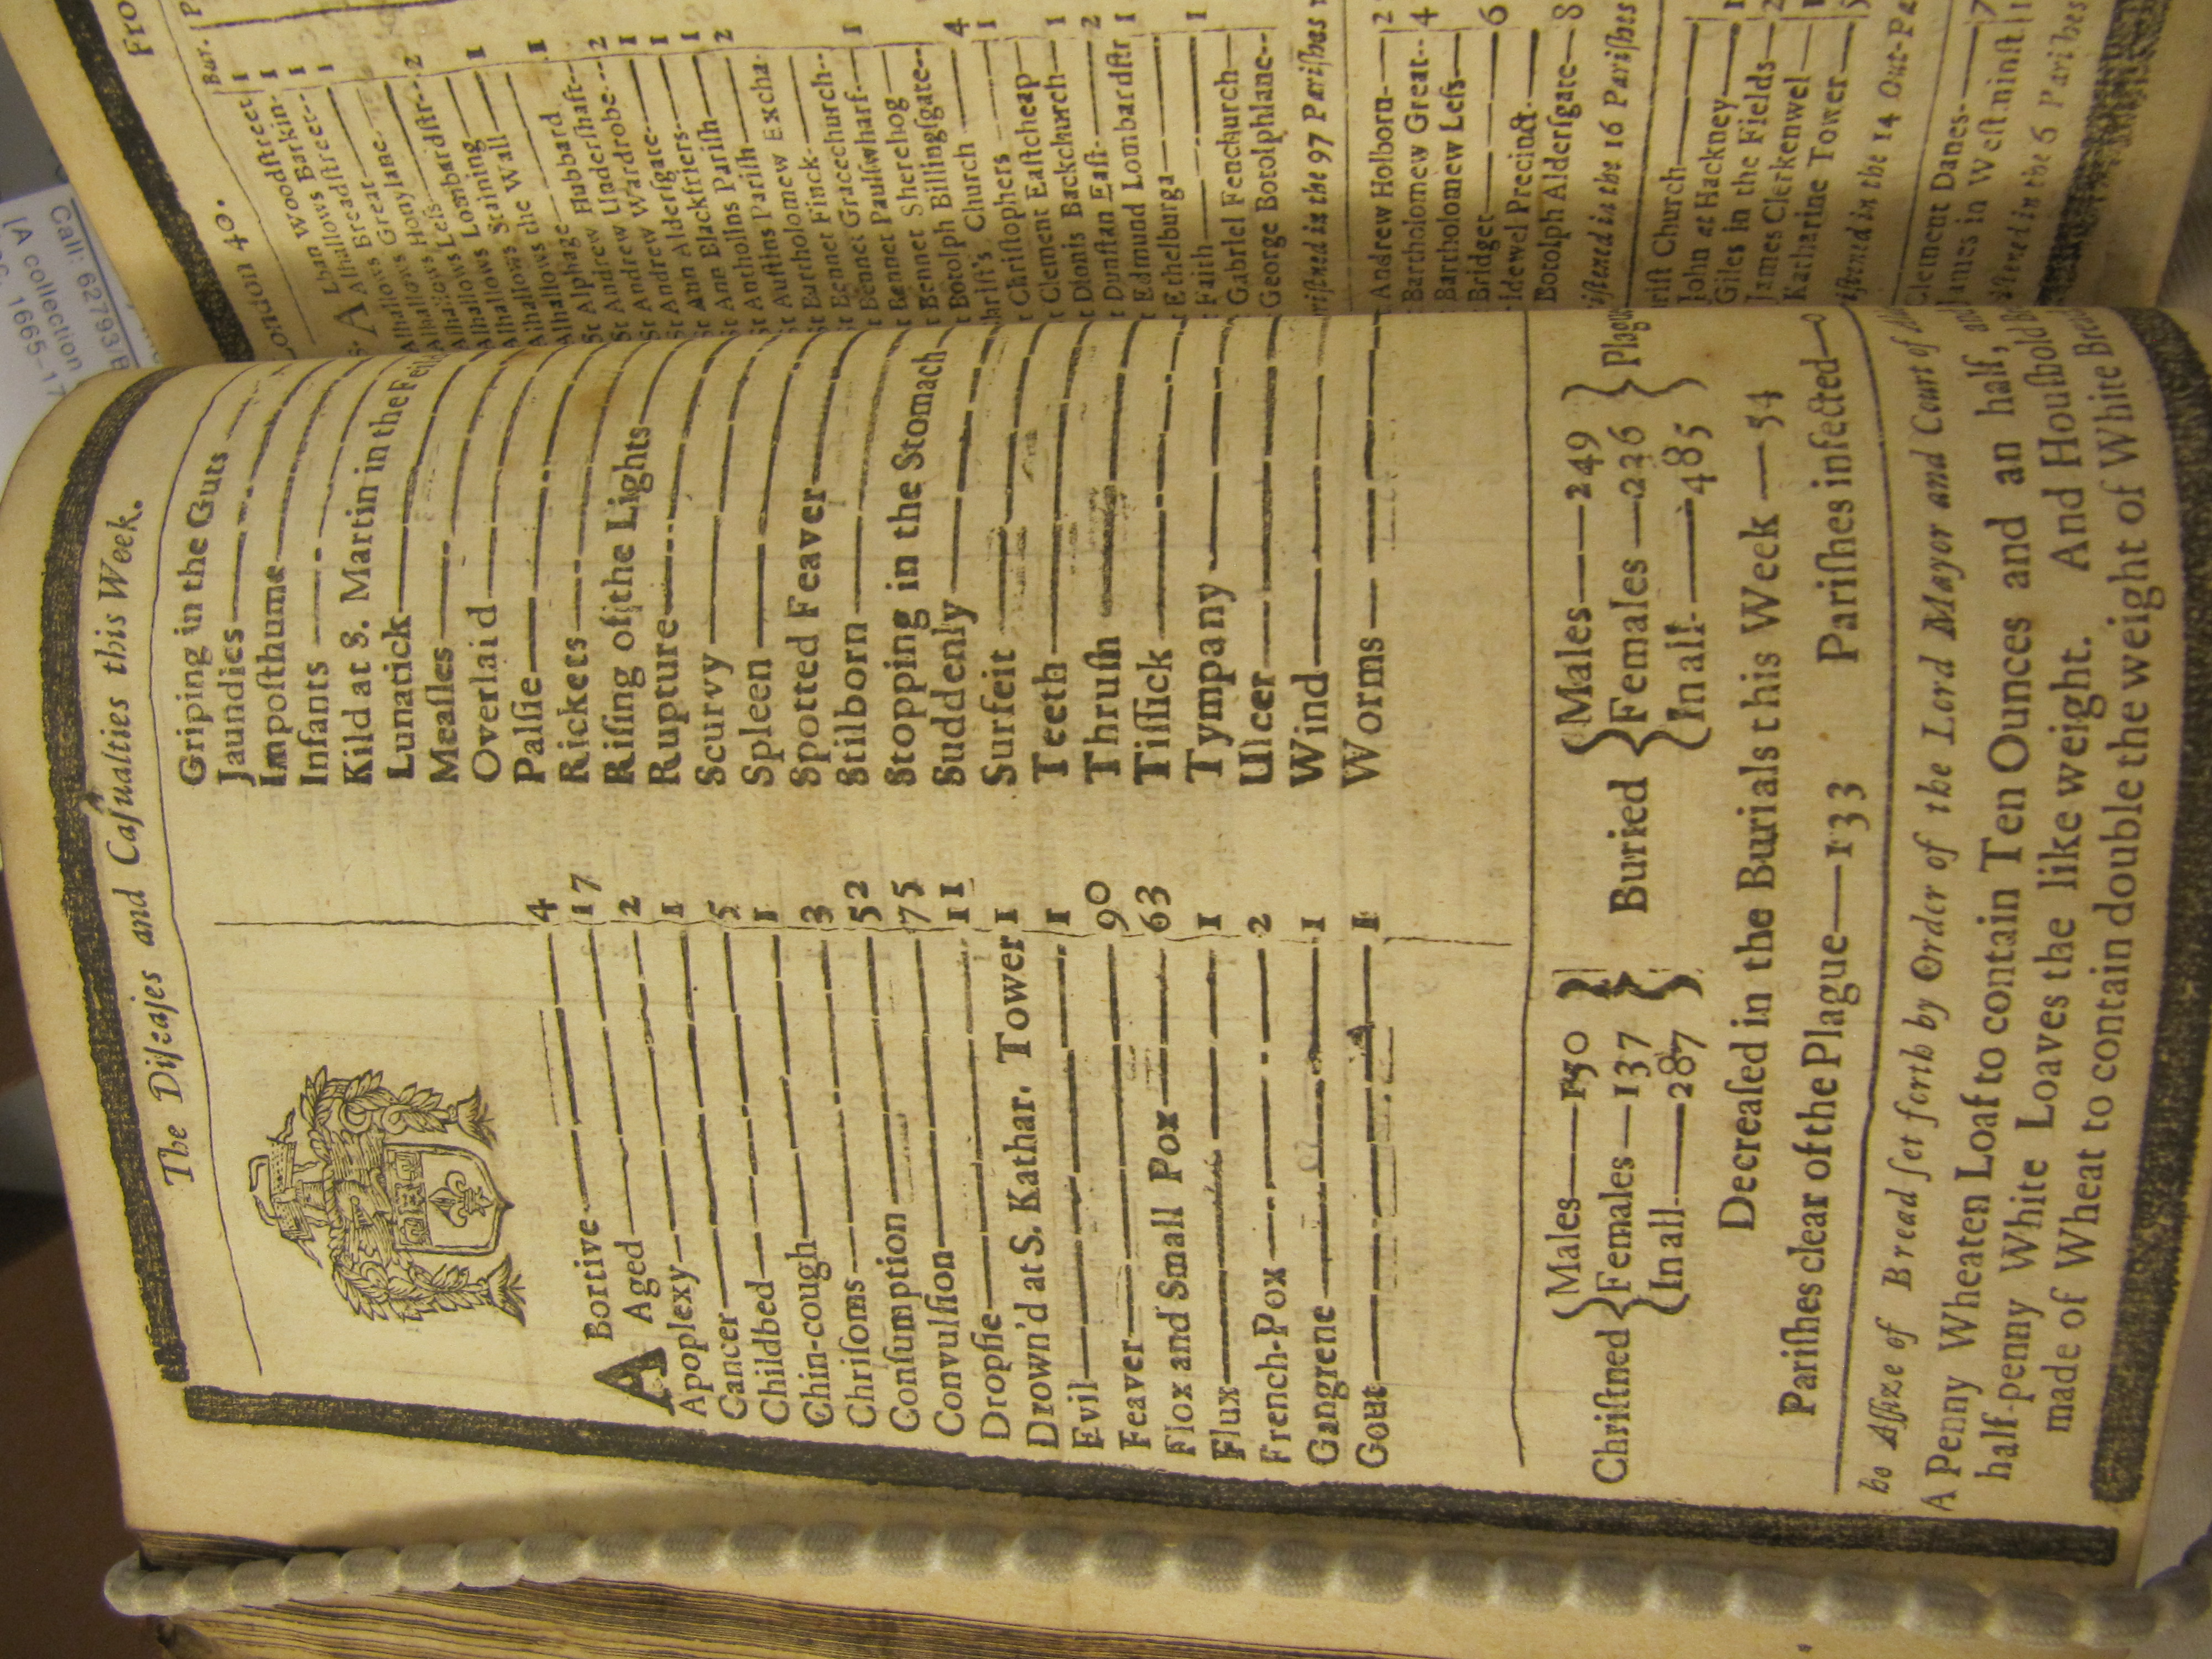 The Diſeaſes and Caſualties this Week.
ABortive 4
Aged 17
Apoplexy 2
Cancer 1
Childbed 5
Chin-cough 1
Chriſoms 3
Conſumption 52
Convulſion 75
Dropſie 11
Drown'd at S. Kathar. Tower 1
Evil 1
Feaver 90
Flox and Small Pox 63
Flux 1
French-Pox 2
Gangrene 1
Gout 1
Griping in the Guts
Jaundies
Impoſthume
Infants
Kild at S. Martin in the
Lunatick
Meaſles
Overlaid
Palſie
Rickets
Riſing of the Lights
Rupture
Scurvy
Spleen
Spotted Feaver
Stilborn
Stopping in the Stomach
Suddenly
Surfeit
Teeth
Thruſh
Tiſſick
Tympany
Ulcer
Wind
Worms
Chriſtned { Males—150 Females—137 In all—287 }
Buried { Males—249 Females—236 In all—485 }
Decreaſed in the Burials this Week—54
Pariſhes clear of the Plague—133 Pariſhes infected—0
Aſſize of Bread ſet forth by Order of the Lord Mayor and Court of
A Penny Wheaten Loaf to contain Ten Ounces and an half, and
half-penny White Loaves the like weight. And Houſhold
made of Wheat to contain double the weight of White
London 40.
Bur.
ALban Woodſtreet 1
Alhallows Barkin 1
Alhallows Breadſtreet 1
Alhallows Great 1
Alhallows Honylane
Alhallows Leſs
Alhallows Lombardſtr 2
Alhallows Staining 1
Alhallows the Wall
Alphage 1
Andrew Hubbard
Andrew Underſhaft
Andrew Wardrobe 2
Ann Alderſgate 1
Ann Blackfriers 1
Antholins Pariſh 1
Auſtins Pariſh 2
Bartholomew Excha.
Bennet Finck
Bennet Gracechurch
Bennet Paulſwharf 1
Bennet Sherehog
Botolph Billingſgate
Church 4
Chriſtophers 1
Clement Eaſtcheap
Dionis Backchurch 1
Dunſtan Eaſt 2
Edmund Lombardſtr 1
Ethelburga
Faith 1
Gabriel Fenchurch
George Botolphlane
in the 97 Pariſhes
Andrew Holborn 2
Bartholomew Great 4
Bartholomew Leſs
Bridget 6
Precinct
Botolph Alderſgate 8
in the 16 Pariſhes
Church
John at Hackney
Giles in the Fields
James Clerkenwel
Katharine Tower
in the 14 Out-
Clement Danes 7
James in Weſtminſt
in the 6 Pariſhes
Call: 62793
[A collection